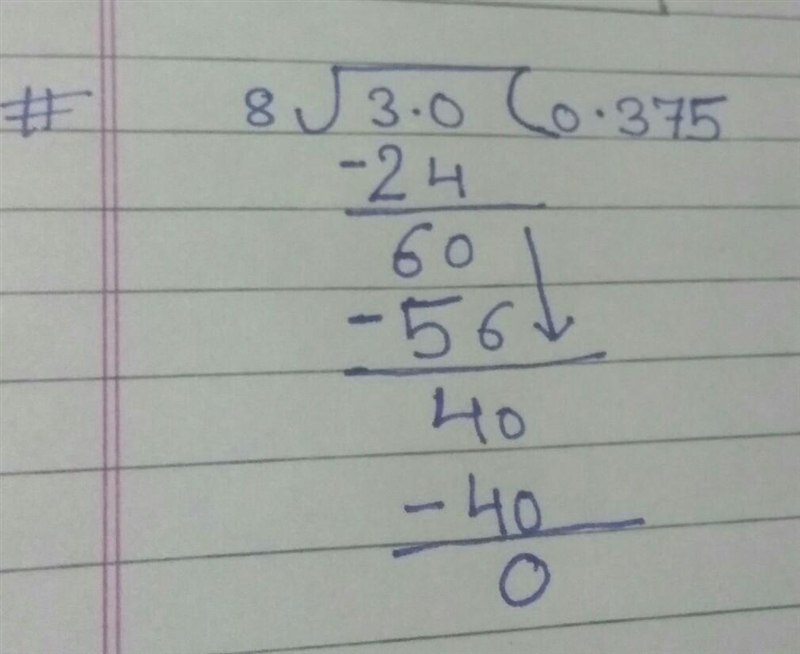 # 8√3.0(0.375
-24
60
-56
40
-40
0